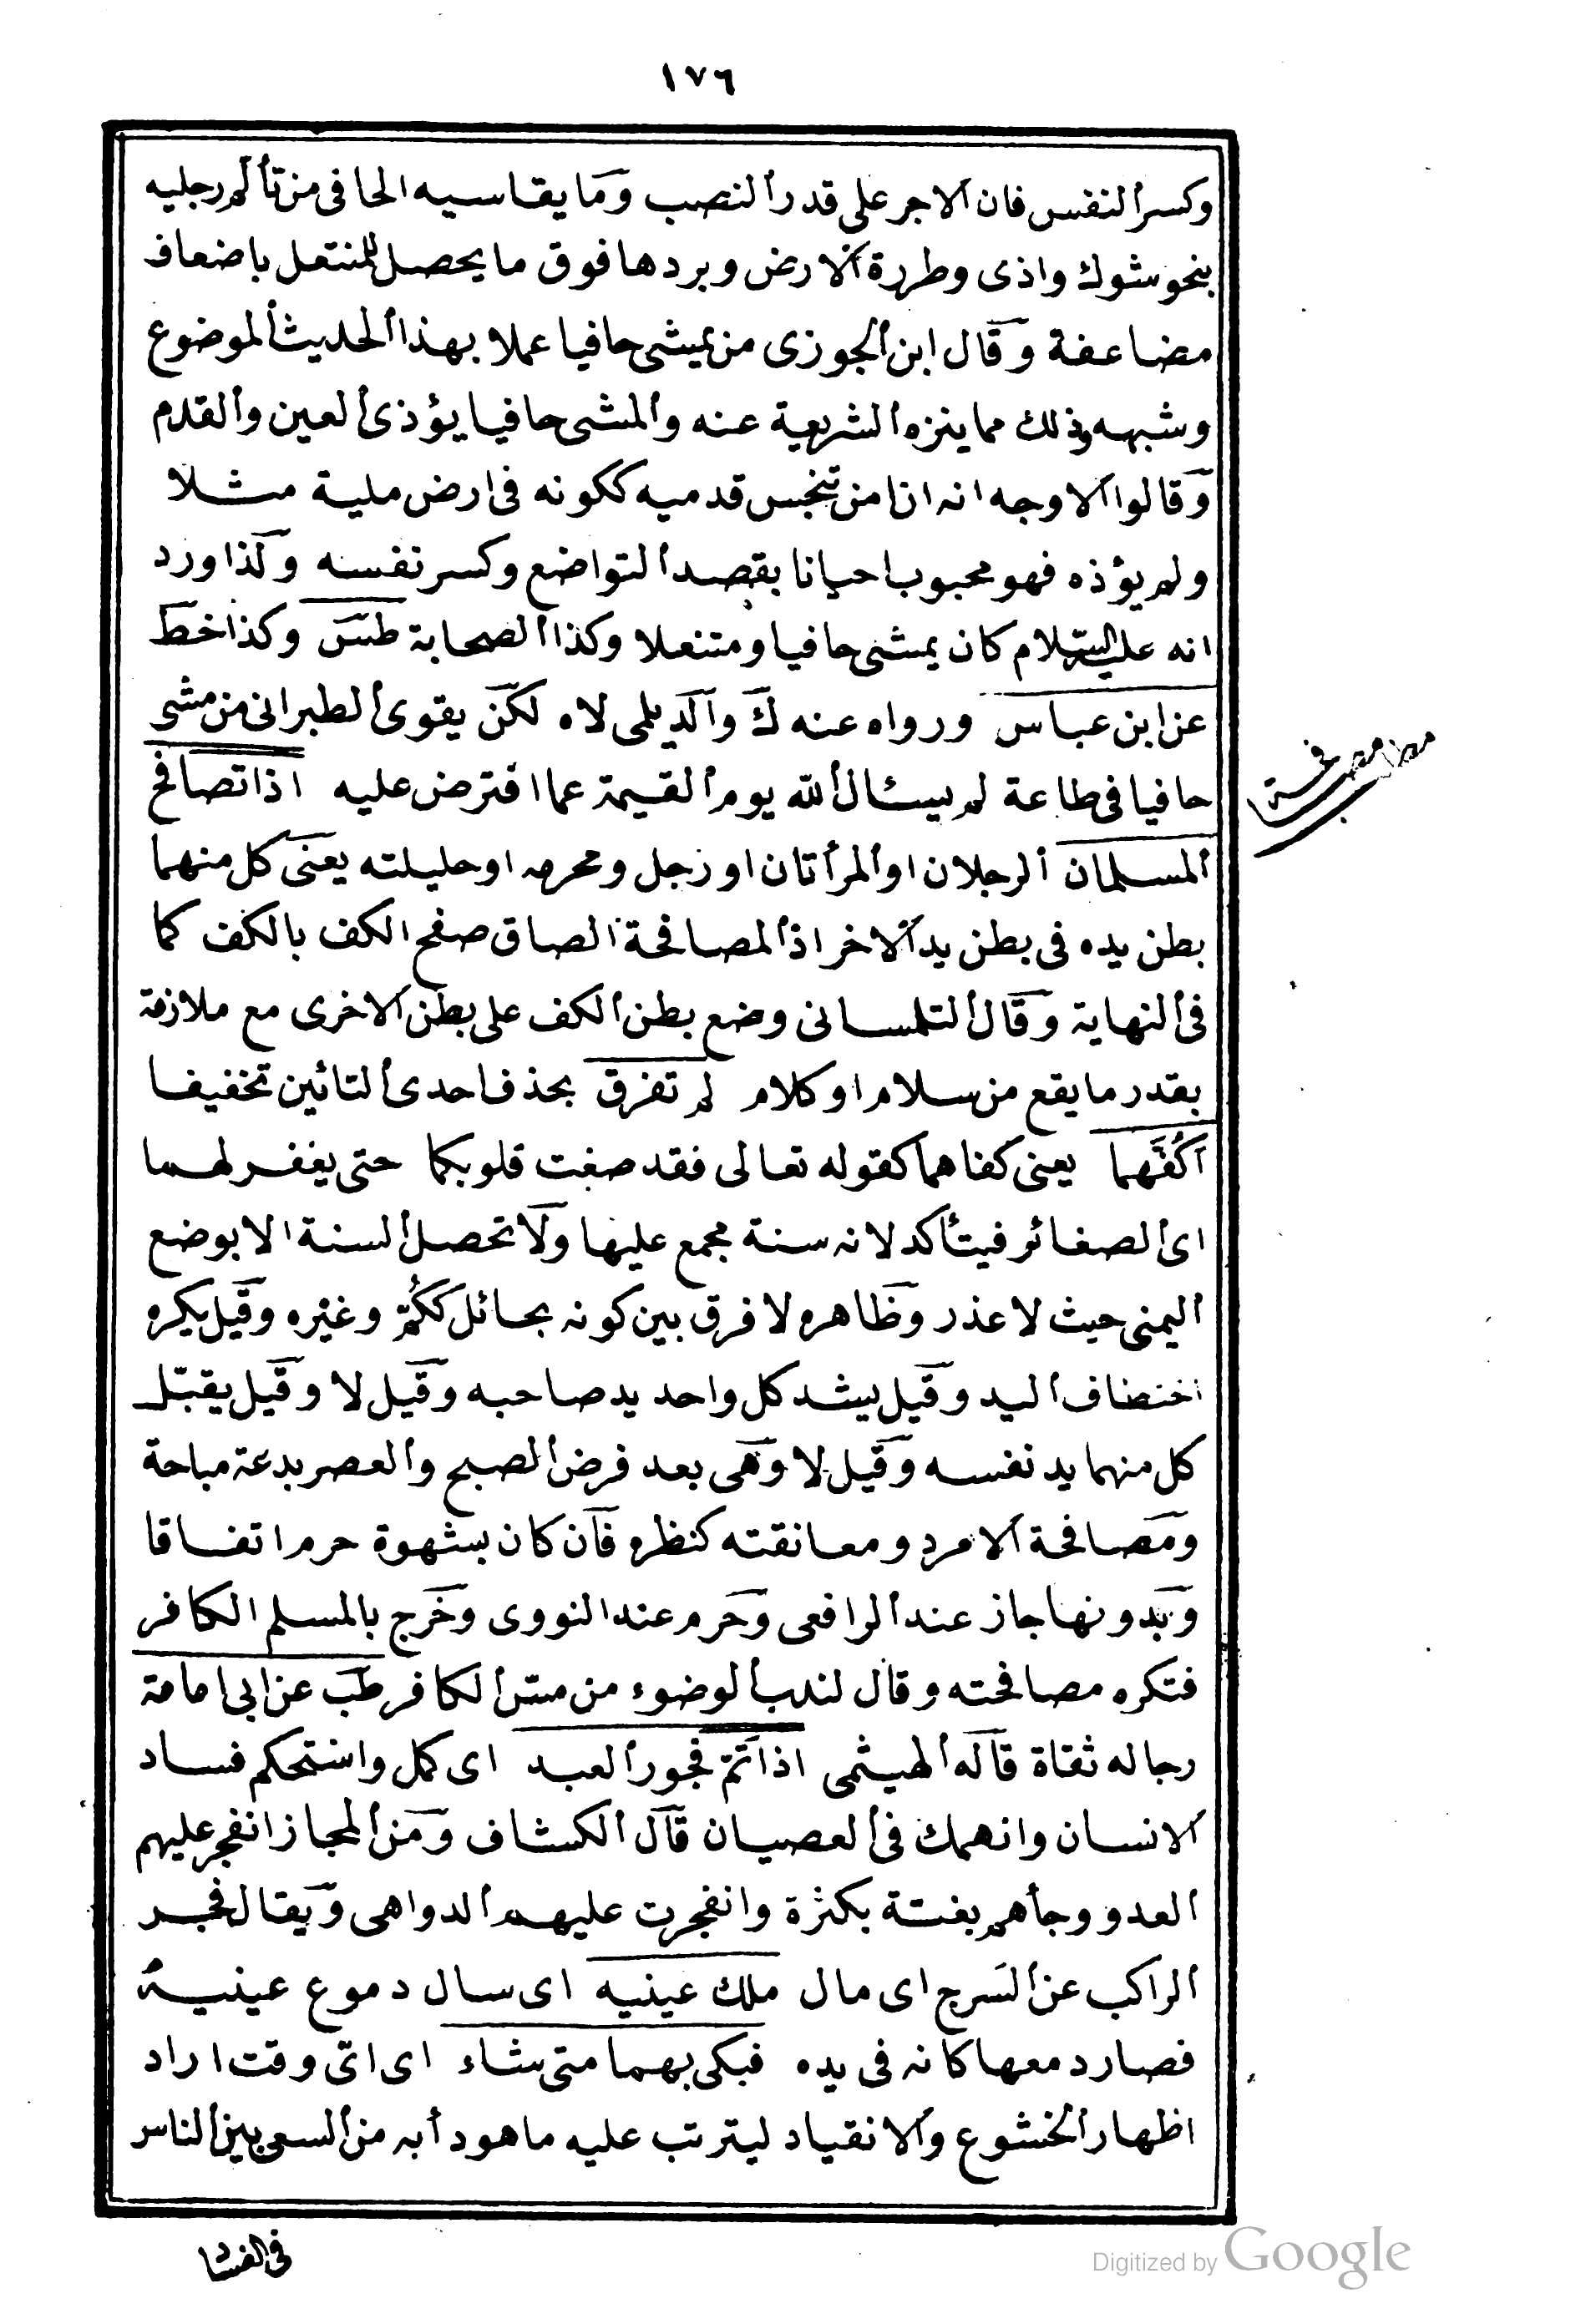 ١٧٦
وكسر النفس فان الاجر على قدر النصب وما يقاسيه الحافى من تألم رجليه
بنحو شوك واذى وطررة الارض وبردها فوق ما يحصل للمنتعل باضعاف
مضاعفة وقال ابن الجوزى من يمشى حافيا عملا بهذا الحديث الموضوع
وشبهه وذلك مما ينزه الشريعة عنه والمشى حافيا يؤذى العين والقدم
وقالوا الاوجه انه ان امن تنجس قدميه ككونه فى ارض ملية مثلا
ولم يؤذه فهو محبوب احيانا بقصد التواضع وكسر نفسه وكذا ورد
انه عليه السلام كان يمشى حافيا ومتنعلا وكذا الصحابة طس وكذا خط
عن ابن عباس ورواه عنه ك والديلمى لاه لكن يقوى الطبرانى من مشى
حافيا فى طاعة لم يسئال الله يوم القيمة عما افترض عليه اذا تصافح
المسلمان الرجلان او المرأتان او رجل ومحرمه او حليلته يعنى كل منهما
بطن يده فى بطن يد الاخر اذ المصافحة الصاق صفح الكف بالكف كما
فى النهاية وقال التلمسانى وضع بطن الكف على بطن الاخرى مع ملازمة
بقدر ما يقع من سلام او كلام لم تفرق بحذف احدى التائين تخفيفا
اكفهما يعنى كفاهما كقوله تعالى فقد صغت قلوبكما حتى يغفر لهما
اى الصغائر فيتأكد لانه سنة مجمع عليها ولا تحصل السنة الا بوضع
اليمنى حيث لا عذر وظاهره لا فرق بين كونه بحائل ككم وغيره وقيل يكره
اختضاف اليد وقيل يشد كل واحد يد صاحبه وقيل لا وقيل يقبل
كل منهما يد نفسه وقيل لا وهى بعد فرض الصبح والعصر بدعة مباحة
ومصافحة الامرد ومعانقته كنظره فان كان بشهوة حرم اتفاقا
وبدونها جاز عند الرافعى وحرم عند النووى وخرج بالمسلم الكافر
فتكره مصافحته وقال لندب الوضوء من مس الكافر طب عن ابى امامة
رجاله ثقاة قاله الهيثمى اذا تم فجور العبد اى كمل واستحكم فساد
الانسان وانهمك فى العصيان قال الكشاف ومن المجاز انفجر عليهم
العدو وجأهم بغتة بكثرة وانفجرت عليهم الدواهى ويقال فجر
الراكب عن السرج اى مال ملك عينيه اى سال دموع عينيه
فصار دمعها كانه فى يده فبكى بهما متى شاء اى اىّ وقت اراد
اظهار الخشوع والانقياد ليترتب عليه ما هو دأبه من السعى بين الناس
فى الفساد
Digitized by Google